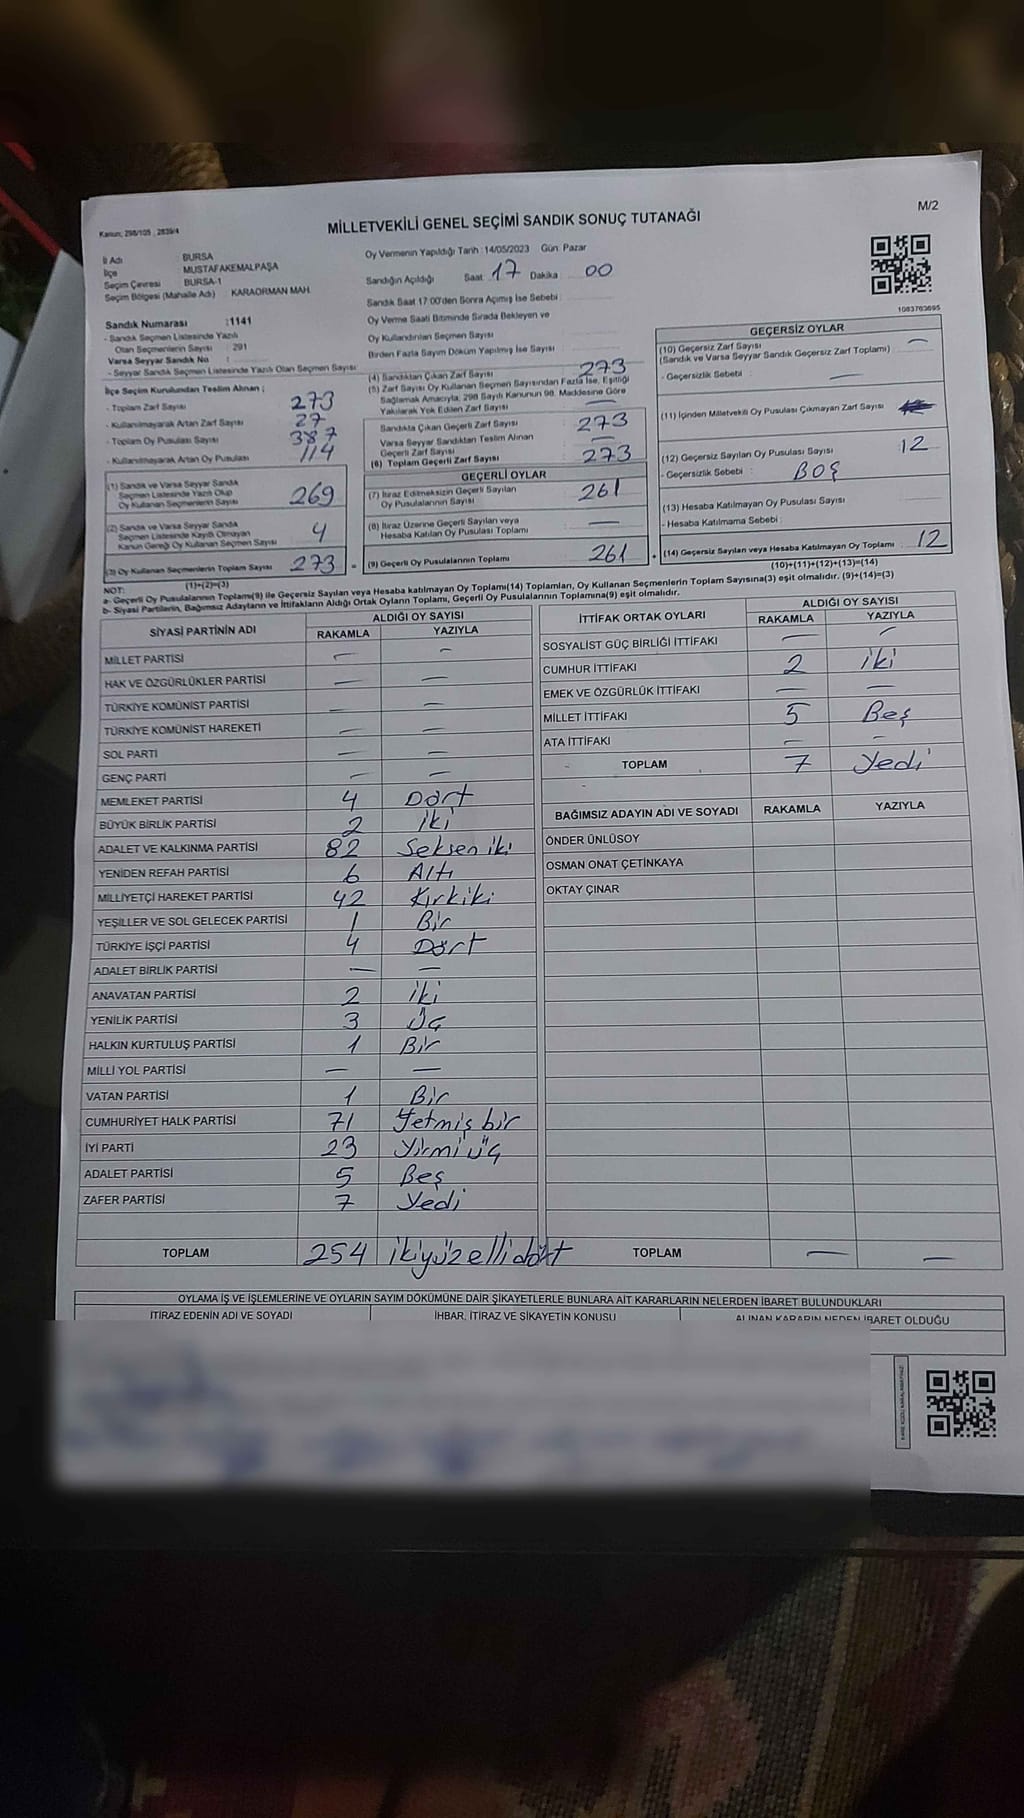 M/2
Kanun; 298/105 , 2839/4
MİLLETVEKİLİ GENEL SEÇİMİ SANDIK SONUÇ TUTANAĞI
İl Adı BURSA
İlçe MUSTAFAKEMALPAŞA
Seçim Çevresi BURSA-1
Seçim Bölgesi (Mahalle Adı) KARAORMAN MAH.
Sandık Numarası :1141
- Sandık Seçmen Listesinde Yazılı
Olan Seçmenlerin Sayısı : 291
Varsa Seyyar Sandık No :
- Seyyar Sandık Seçmen Listesinde Yazılı Olan Seçmen Sayısı
İlçe Seçim Kurulundan Teslim Alınan ;
- Toplam Zarf Sayısı 273
- Kullanılmayarak Artan Zarf Sayısı 27
- Toplam Oy Pusulası Sayısı 387
- Kullanılmayarak Artan Oy Pusulası 114
(1) Sandık ve Varsa Seyyar Sandık
Seçmen Listesinde Yazılı Olup
Oy Kullanan Seçmenlerin Sayısı 269
(2) Sandık ve Varsa Seyyar Sandık
Seçmen Listesinde Kayıtlı Olmayan
Kanun Gereği Oy Kullanan Seçmen Sayısı 4
(3) Oy Kullanan Seçmenlerin Toplam Sayısı 273 =
(1)+(2)=(3)
Oy Vermenin Yapıldığı Tarih : 14/05/2023 Gün: Pazar
Sandığın Açıldığı Saat : 17 Dakika : 00
Sandık Saat 17:00'den Sonra Açımış İse Sebebi :
Oy Verme Saati Bitiminde Sırada Bekleyen ve
Oy Kullandırılan Seçmen Sayısı :
Birden Fazla Sayım Döküm Yapılmış İse Sayısı :
(4) Sandıktan Çıkan Zarf Sayısı : 273
(5) Zarf Sayısı Oy Kullanan Seçmen Sayısından Fazla İse, Eşitliği
Sağlamak Amacıyla; 298 Sayılı Kanunun 98. Maddesine Göre
Yakılarak Yok Edilen Zarf Sayısı : —
Sandıkta Çıkan Geçerli Zarf Sayısı : 273
Varsa Seyyar Sandıktan Teslim Alınan
Geçerli Zarf Sayısı : —
(6) Toplam Geçerli Zarf Sayısı : 273
GEÇERLİ OYLAR
(7) İtiraz Edilmeksizin Geçerli Sayılan
Oy Pusulalarının Sayısı : 261
(8) İtiraz Üzerine Geçerli Sayılan veya
Hesaba Katılan Oy Pusulası Toplamı : —
(9) Geçerli Oy Pusulalarının Toplamı : 261 +
1083763695
GEÇERSİZ OYLAR
(10) Geçersiz Zarf Sayısı : —
(Sandık ve Varsa Seyyar Sandık Geçersiz Zarf Toplamı)
- Geçersizlik Sebebi : —
(11) İçinden Milletvekili Oy Pusulası Çıkmayan Zarf Sayısı :
(12) Geçersiz Sayılan Oy Pusulası Sayısı : 12
- Geçersizlik Sebebi : BOŞ
(13) Hesaba Katılmayan Oy Pusulası Sayısı :
- Hesaba Katılmama Sebebi :
(14) Geçersiz Sayılan veya Hesaba Katılmayan Oy Toplamı : 12
(10)+(11)+(12)+(13)=(14)
NOT:
a- Geçerli Oy Pusulalarının Toplamı(9) ile Geçersiz Sayılan veya Hesaba katılmayan Oy Toplamı(14) Toplamları, Oy Kullanan Seçmenlerin Toplam Sayısına(3) eşit olmalıdır. (9)+(14)=(3)
b- Siyasi Partilerin, Bağımsız Adayların ve İttifakların Aldığı Ortak Oyların Toplamı, Geçerli Oy Pusulalarının Toplamına(9) eşit olmalıdır.
SİYASİ PARTİNİN ADI ALDIĞI OY SAYISI
RAKAMLA YAZIYLA
MİLLET PARTİSİ — —
HAK VE ÖZGÜRLÜKLER PARTİSİ — —
TÜRKİYE KOMÜNİST PARTİSİ — —
TÜRKİYE KOMÜNİST HAREKETİ — —
SOL PARTİ — —
GENÇ PARTİ — —
MEMLEKET PARTİSİ 4 Dört
BÜYÜK BİRLİK PARTİSİ 2 iki
ADALET VE KALKINMA PARTİSİ 82 Seksen iki
YENİDEN REFAH PARTİSİ 6 Altı
MİLLİYETÇİ HAREKET PARTİSİ 42 Kırkiki
YEŞİLLER VE SOL GELECEK PARTİSİ 1 Bir
TÜRKİYE İŞÇİ PARTİSİ 4 Dört
ADALET BİRLİK PARTİSİ — —
ANAVATAN PARTİSİ 2 iki
YENİLİK PARTİSİ 3 Üç
HALKIN KURTULUŞ PARTİSİ 1 Bir
MİLLİ YOL PARTİSİ — —
VATAN PARTİSİ 1 Bir
CUMHURİYET HALK PARTİSİ 71 Yetmiş bir
İYİ PARTİ 23 Yirmi üç
ADALET PARTİSİ 5 Beş
ZAFER PARTİSİ 7 Yedi
TOPLAM 254 ikiyüzellidört
İTTİFAK ORTAK OYLARI ALDIĞI OY SAYISI
RAKAMLA YAZIYLA
SOSYALİST GÜÇ BİRLİĞİ İTTİFAKI — —
CUMHUR İTTİFAKI 2 iki
EMEK VE ÖZGÜRLÜK İTTİFAKI — —
MİLLET İTTİFAKI 5 Beş
ATA İTTİFAKI — —
TOPLAM 7 Yedi
BAĞIMSIZ ADAYIN ADI VE SOYADI RAKAMLA YAZIYLA
ÖNDER ÜNLÜSOY
OSMAN ONAT ÇETİNKAYA
OKTAY ÇINAR
TOPLAM — —
OYLAMA İŞ VE İŞLEMLERİNE VE OYLARIN SAYIM DÖKÜMÜNE DAİR ŞİKAYETLERLE BUNLARA AİT KARARLARIN NELERDEN İBARET BULUNDUKLARI
İTİRAZ EDENİN ADI VE SOYADI İHBAR, İTİRAZ VE ŞİKAYETİN KONUSU ALINAN KARARIN NEDEN İBARET OLDUĞU